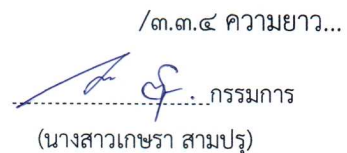 /๓.๓.๔ ความยาว...
กรรมการ
(นางสาวเกษรา สามปรุ)